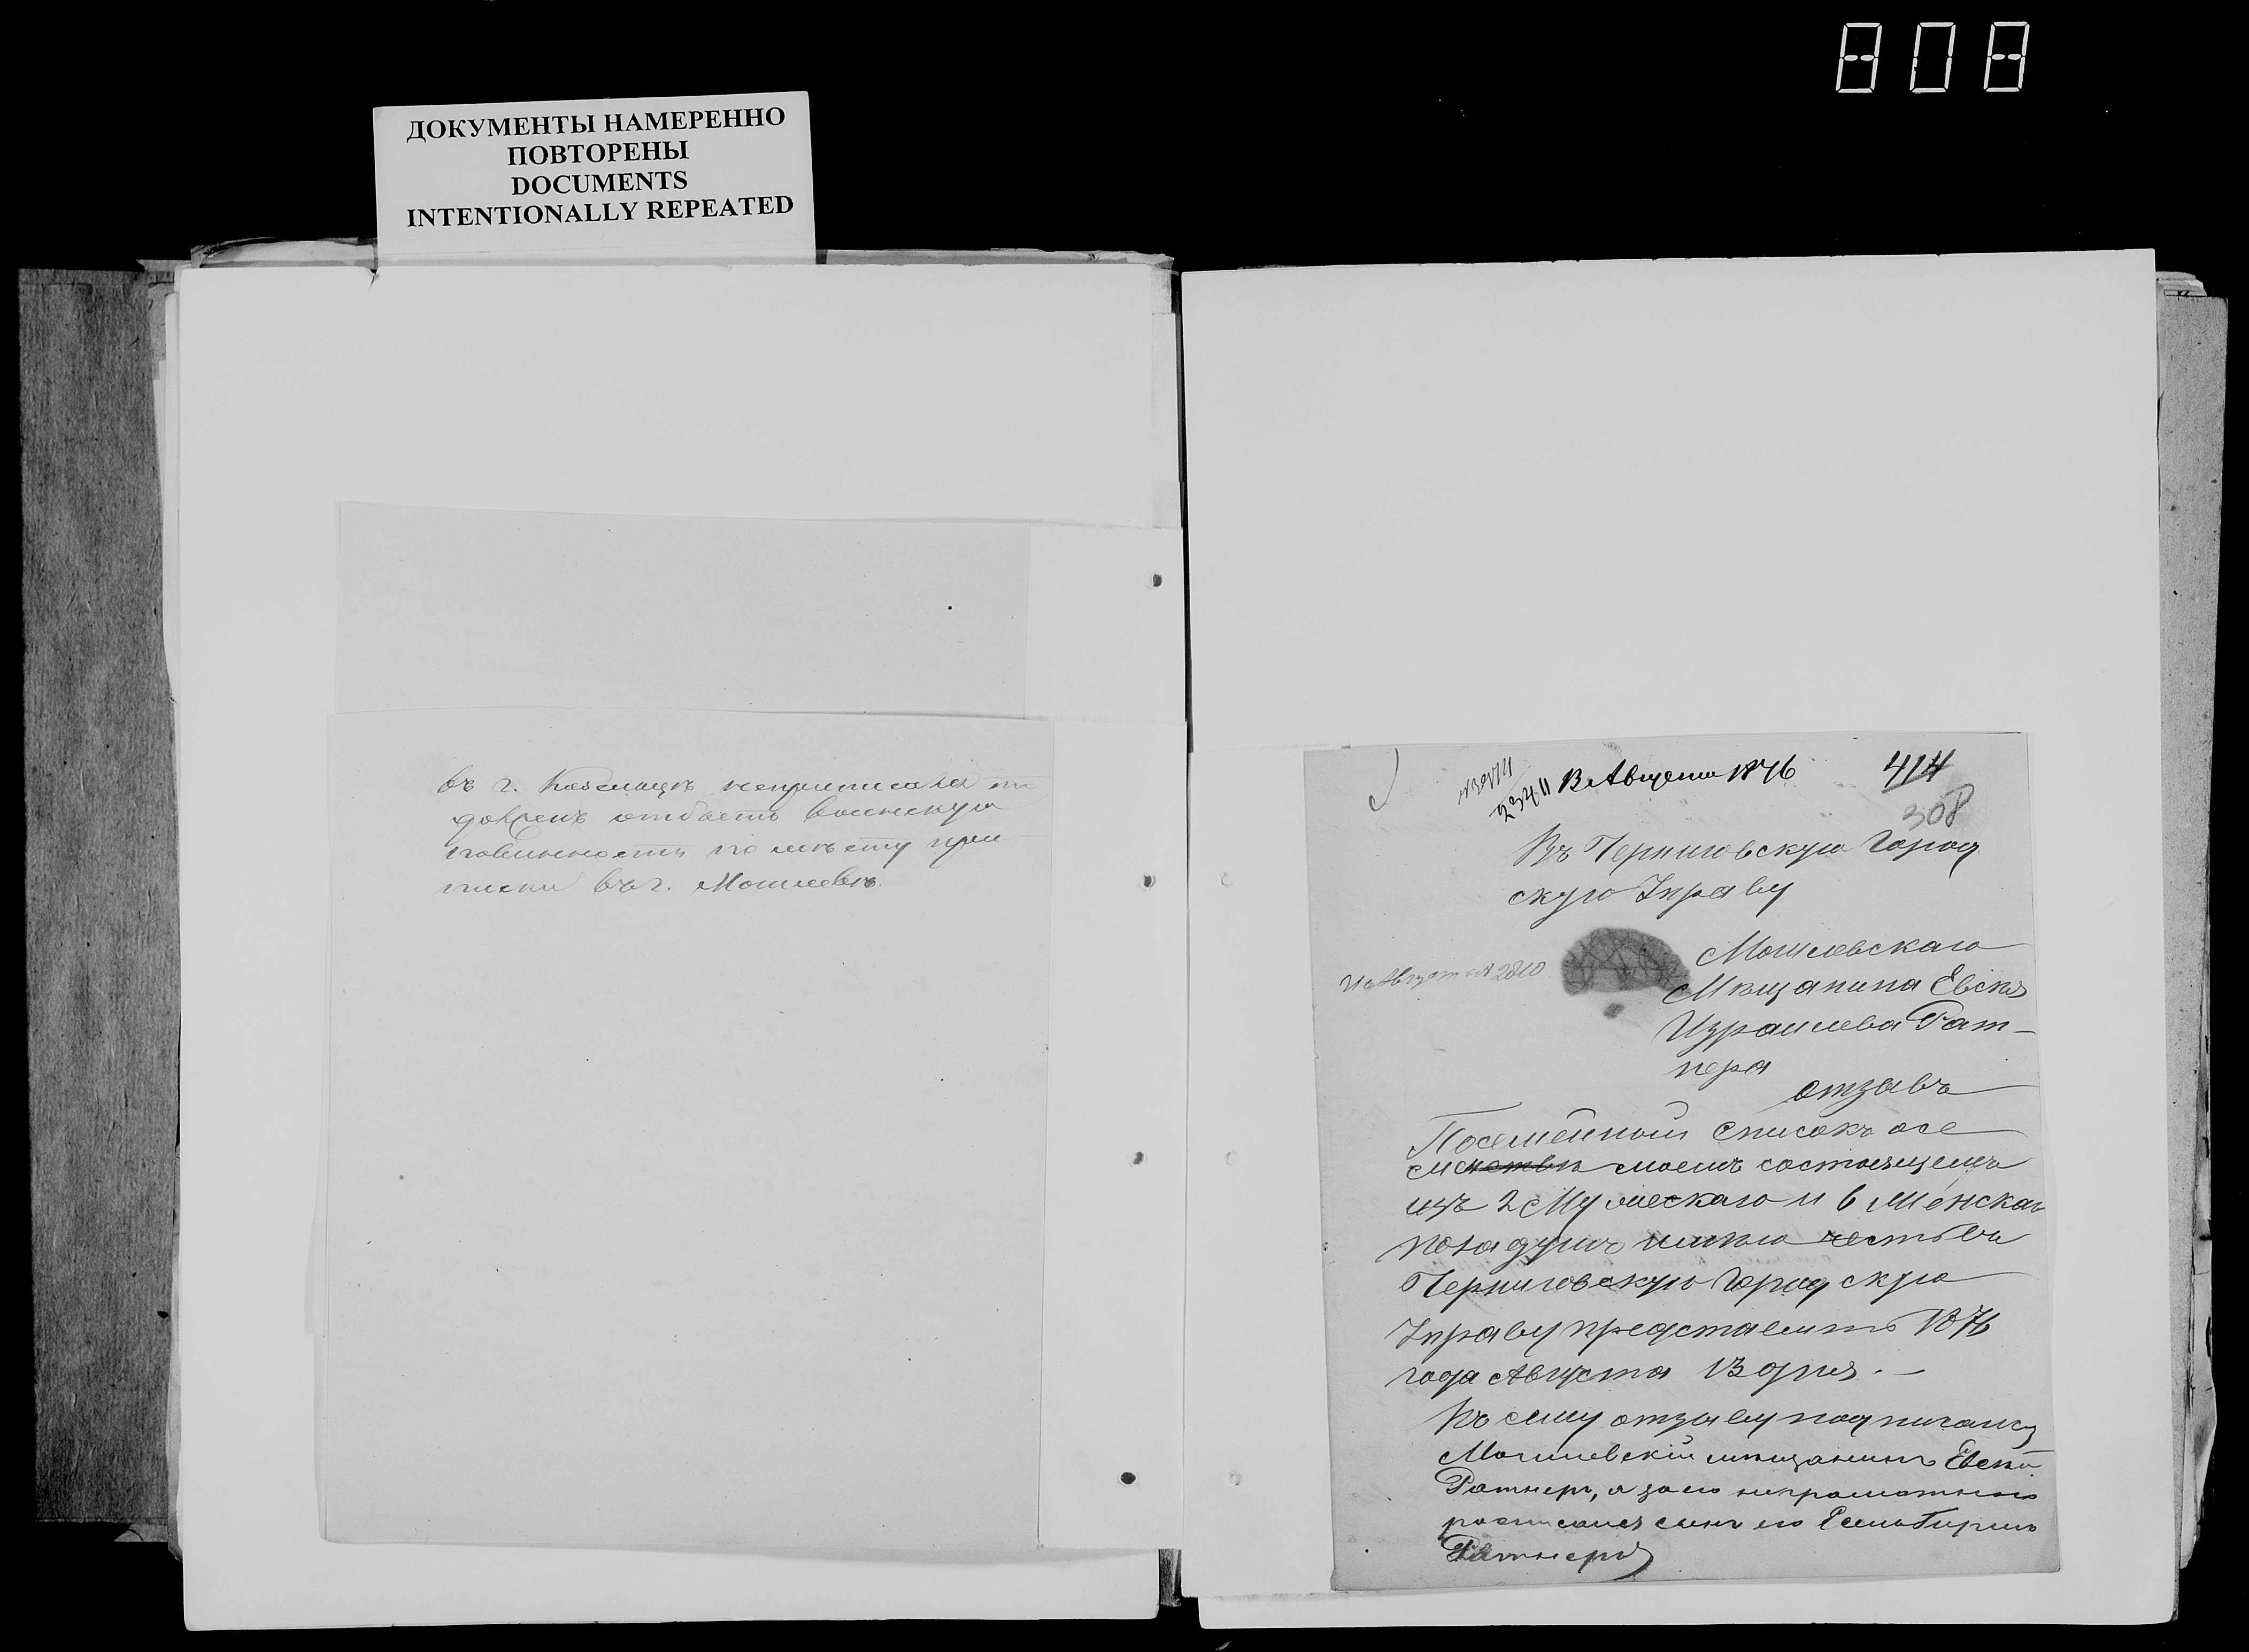 808
ДОКУМЕНТЫ НАМЕРЕННО
ПОВТОРЕНЫ
DOCUMENTS
INTENTIONALLY REPEATED
въ г.
долженъ отбыть воинскую
повинность по мѣсту при
писки въ г. Могилевѣ.
13 Августа 1876
414
308
Въ Черниговскую Город
скую Управу
Могилевскаго
Мѣщанина Евсѣя
Израилева Рат-
нера
отзывъ
Посемейный списокъ о се
моемъ состоящемъ
изъ 2 Мужескаго и 6 Женскаго
пола душъ имѣю честь въ
Черниговскую Городскую
Управу представить 1876
года Августа 13 дня. —
Къ сему отзыву
Могилевскій мѣщанинъ Евсѣй
Ратнеръ, а за его неграмотного
росписался сынъ его
Ратнеръ